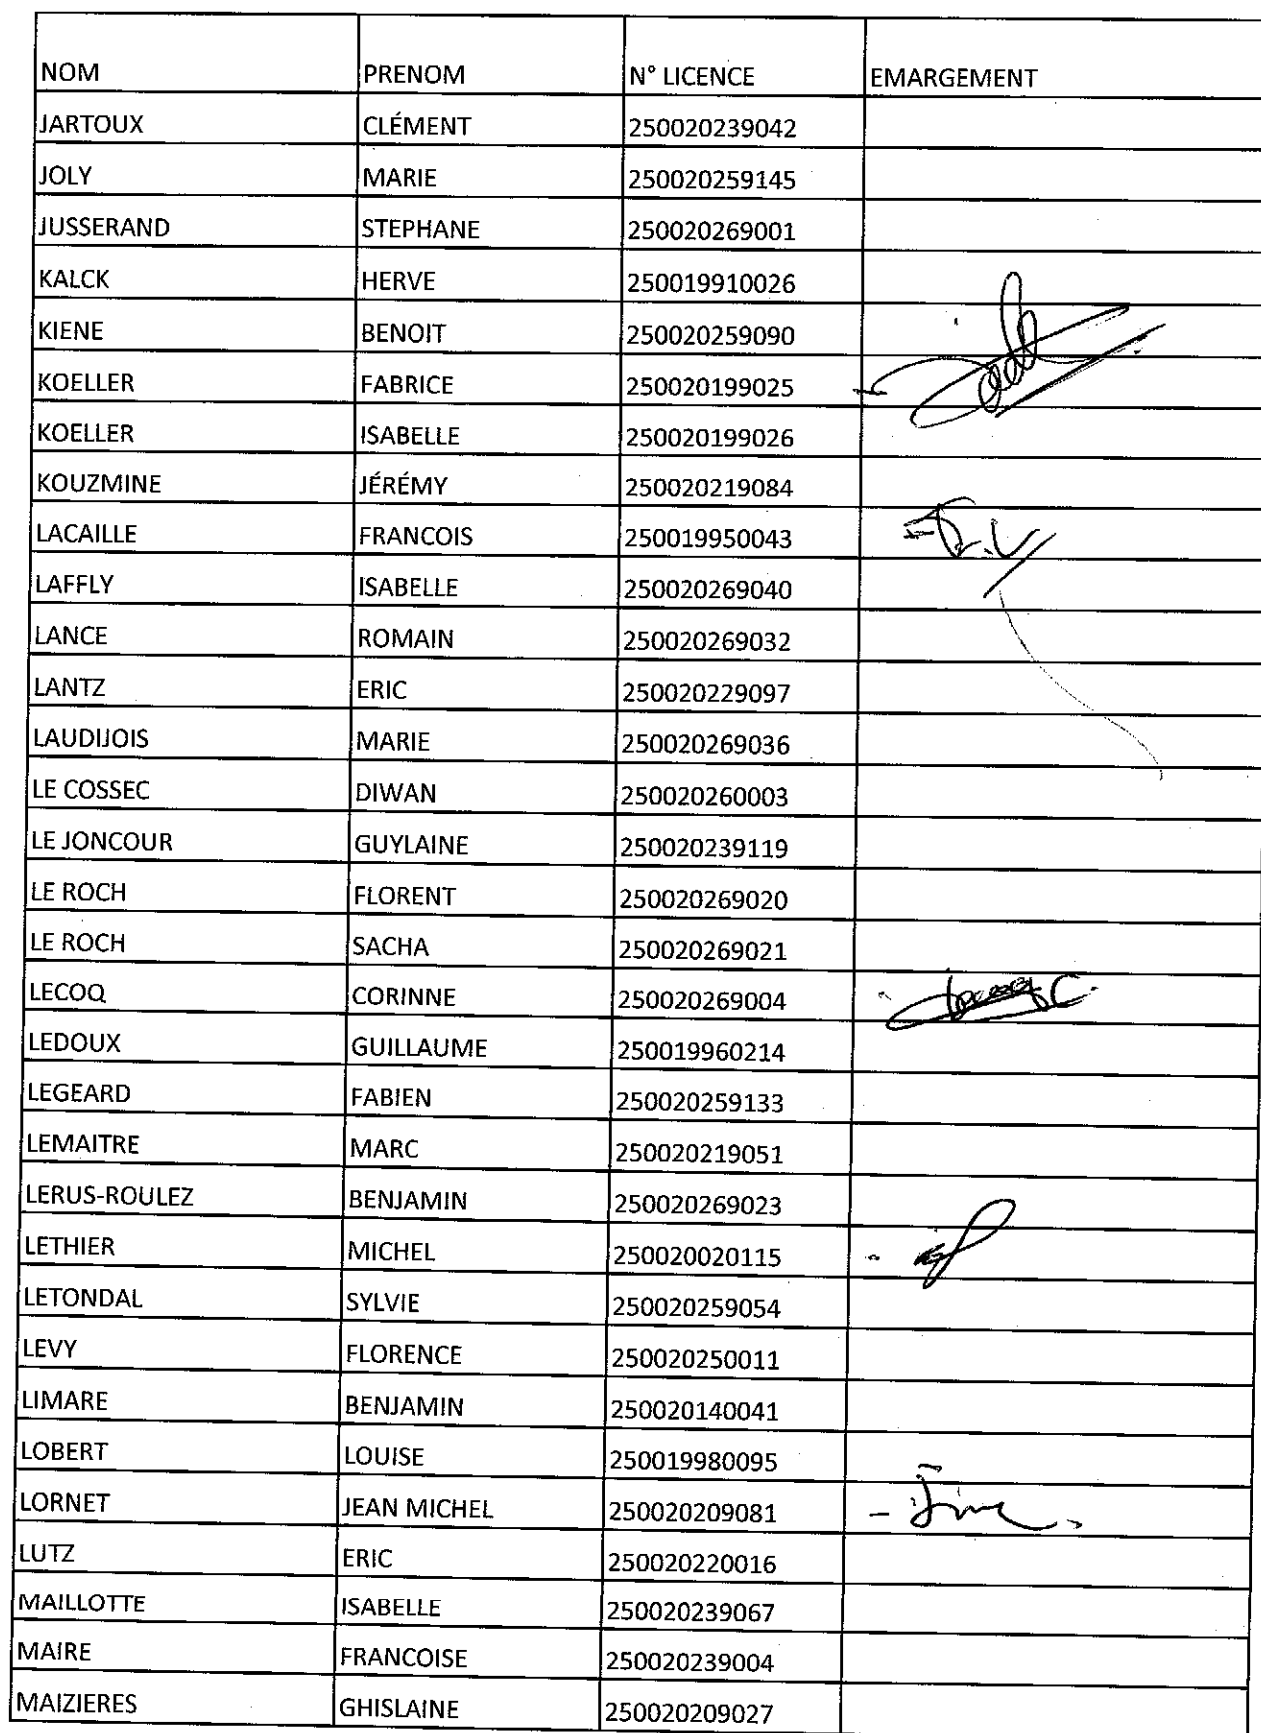 NOM PRENOM N° LICENCE EMARGEMENT
JARTOUX CLÉMENT 250020239042
JOLY MARIE 250020259145
JUSSERAND STEPHANE 250020269001
KALCK HERVE 250019910026
KIENE BENOIT 250020259090
KOELLER FABRICE 250020199025
KOELLER ISABELLE 250020199026
KOUZMINE JÉRÉMY 250020219084
LACAILLE FRANCOIS 250019950043
LAFFLY ISABELLE 250020269040
LANCE ROMAIN 250020269032
LANTZ ERIC 250020229097
LAUDIJOIS MARIE 250020269036
LE COSSEC DIWAN 250020260003
LE JONCOUR GUYLAINE 250020239119
LE ROCH FLORENT 250020269020
LE ROCH SACHA 250020269021
LECOQ CORINNE 250020269004
LEDOUX GUILLAUME 250019960214
LEGEARD FABIEN 250020259133
LEMAITRE MARC 250020219051
LERUS-ROULEZ BENJAMIN 250020269023
LETHIER MICHEL 250020020115
LETONDAL SYLVIE 250020259054
LEVY FLORENCE 250020250011
LIMARE BENJAMIN 250020140041
LOBERT LOUISE 250019980095
LORNET JEAN MICHEL 250020209081
LUTZ ERIC 250020220016
MAILLOTTE ISABELLE 250020239067
MAIRE FRANCOISE 250020239004
MAIZIERES GHISLAINE 250020209027